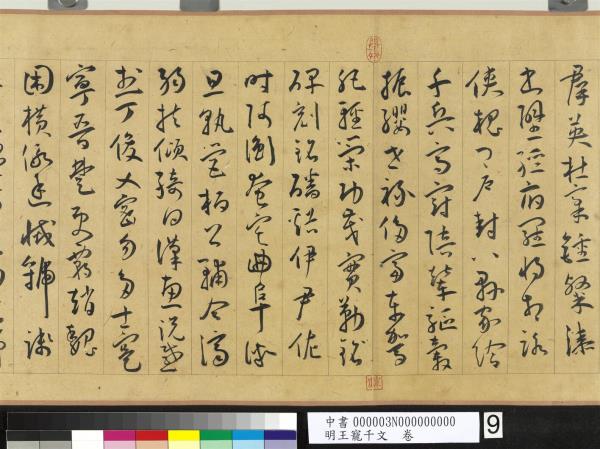 羣英杜稾鍾隸漆
書壁經府羅將相路
俠槐卿戶封八縣家給
千兵高冠陪輦驅轂
振纓世祿侈富車駕
肥輕策功茂實勒
碑刻銘磻溪伊尹佐
時阿衡奄宅曲阜微
旦孰營桓公輔合濟
弱扶傾綺迴漢惠說感
武丁俊乂密勿多士寔
寧晉楚更霸趙魏
困橫假途滅虢踐
中書 000003N000000000
明王寵千文 卷
9